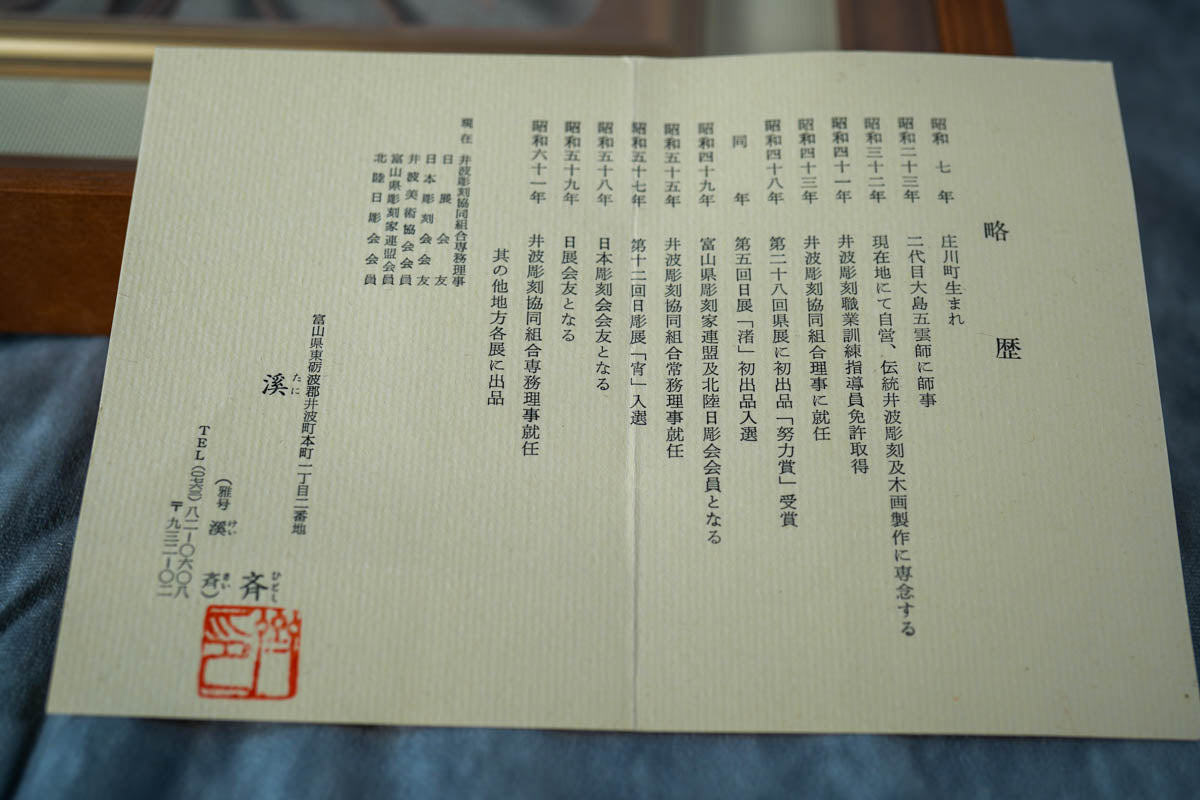 略歴
昭和七年 庄川町生まれ
昭和二十三年 二代目大島五雲師に師事
昭和三十二年 現在地にて自営、伝統井波彫刻及木画製作に専念する
昭和四十一年 井波彫刻職業訓練指導員免許取得
昭和四十三年 井波彫刻協同組合理事に就任
昭和四十八年 第二十八回県展に初出品「努力賞」受賞
同年 第五回日展「渚」初出品入選
昭和四十九年 富山県彫刻家連盟及北陸日彫会会員となる
昭和五十五年 井波彫刻協同組合常務理事就任
昭和五十七年 第十二回日彫展「宵」入選
昭和五十八年 日本彫刻会会友となる
昭和五十九年 日展会友となる
昭和六十一年 井波彫刻協同組合専務理事就任
其の他地方各展に出品
現在 井波彫刻協同組合専務理事
日展会友
日本彫刻会会友
井波美術協会会員
富山県彫刻家連盟会員
北陸日彫会会員
富山県東砺波郡井波町本町一丁目二番地
溪たに 斉ひとし
(雅号 溪けい 斉さい)
TEL(〇七六三)八二-〇六〇八
〒九三二-〇二